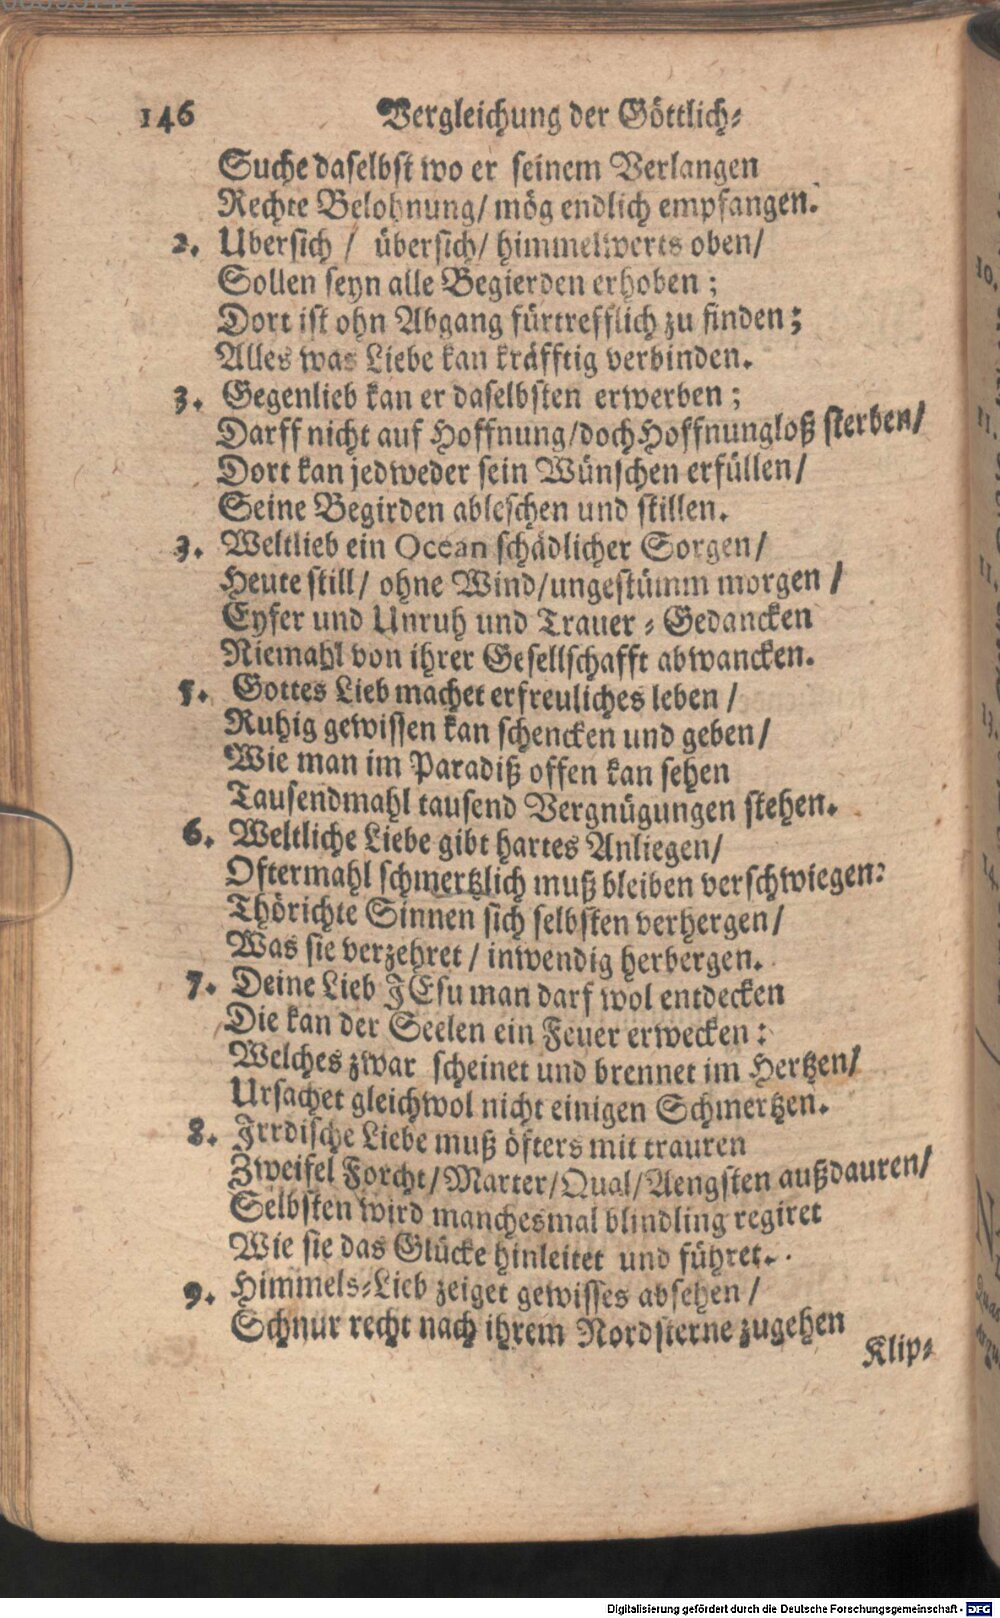 146 Vergleichung der Göttlich⸗
Suche daselbst wo er seinem Verlangen
Rechte Belohnung/ mög endlich empfangen.
2. Ubersich / übersich/ himmelwerts oben/
Sollen seyn alle Begierden erhoben ;
Dort ist ohn Abgang fürtrefflich zu finden;
Alles was Liebe kan kräfftig verbinden.
3. Gegenlieb kan er daselbsten erwerben ;
Darff nicht auf Hoffnung/doch Hoffnungloß sterben/
Dort kan jedweder sein Wünschen erfüllen/
Seine Begirden ableschen und stillen.
3. Weltlieb ein Ocean schädlicher Sorgen/
Heute still/ ohne Wind/ungestümm morgen /
Eyfer und Unruh und Trauer ⸗ Gedancken
Niemahl von ihrer Gesellschafft abwancken.
5. Gottes Lieb machet erfreuliches leben /
Ruhig gewissen kan schencken und geben/
Wie man im Paradiß offen kan sehen
Tausendmahl tausend Vergnügungen stehen.
6. Weltliche Liebe gibt hartes Anliegen/
Oftermahl schmertzlich muß bleiben verschwiegen:
Thörichte Sinnen sich selbsten verhergen/
Was sie verzehret / inwendig herbergen.
7. Deine Lieb JEsu man darf wol entdecken
Die kan der Seelen ein Feuer erwecken :
Welches zwar scheinet und brennet im Hertzen/
Ursachet gleichwol nicht einigen Schmertzen.
8. Irrdische Liebe muß öfters mit trauren
Zweifel Forcht/Marter/Qual/Aengsten außdauren/
Selbsten wird manchesmal blindling regiret
Wie sie das Glücke hinleitet und führet.
9. Himmels⸗Lieb zeiget gewisses absehen /
Schnur recht nach ihrem Nordsterne zugehen
Klip⸗
Digitalisierung gefördert durch die Deutsche Forschungsgemeinschaft - DFG